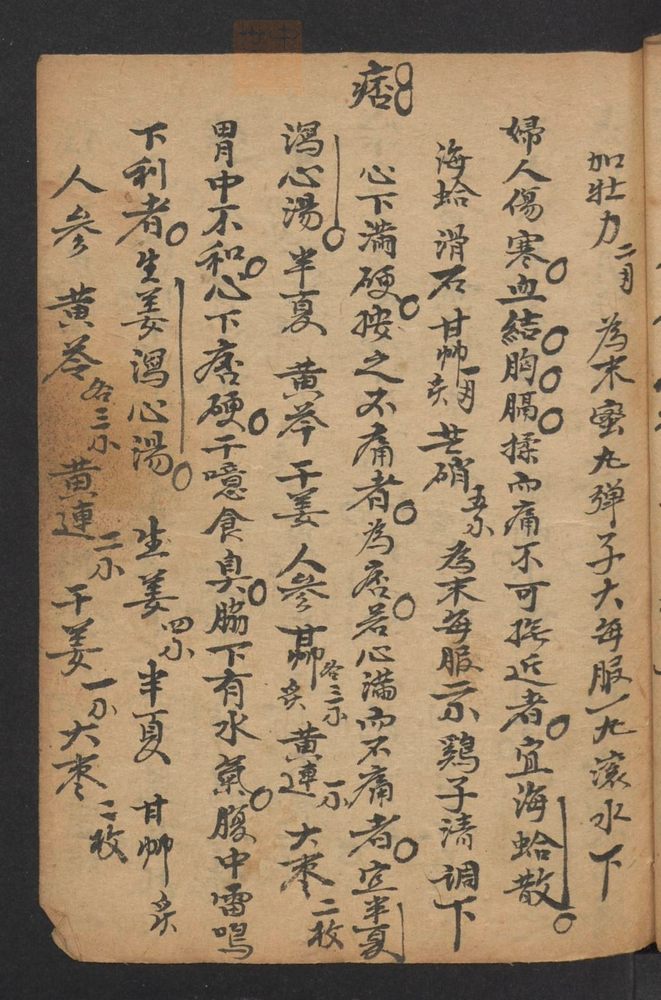 加壮力二月 為末蜜丸弹子大每服一丸滚水下
婦人傷寒血結胸膈揉而痛不可撫近者宜海蛤散
海蛤 滑石 甘艸炙一月 芒硝五小 為末每服二小鷄子清調下
痞
心下滿硬按之不痛者為痞若心滿而不痛者宜半夏
瀉心湯 半夏 黄芩 干姜 人參 甘艸炙各三小 黄連一小 大枣二枚
胃中不和心下痞硬干噫食臭脇下有水氣腹中雷鳴
下利者生姜瀉心湯 生姜四小 半夏 甘艸炙
人參 黄芩各三小 黄連二小 干姜一小 大枣二枚